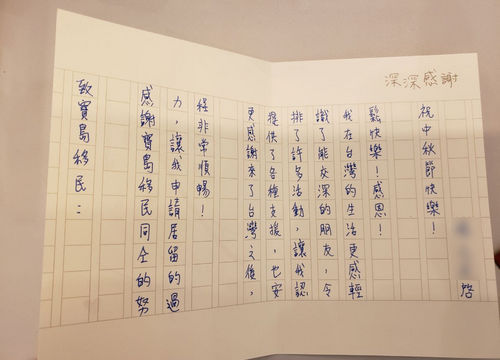 致寶島移民：
感謝寶島移民同仝的努
力，讓我申請居留的過
経非常順暢！
更感謝來了台灣之後，
提供了各種支援，也安
排了許多活動，讓我認
識了能交深的朋友，令
我在台灣的生活更感輕
鬆快樂！感恩！
祝中秋節快樂！
啓
深深感謝